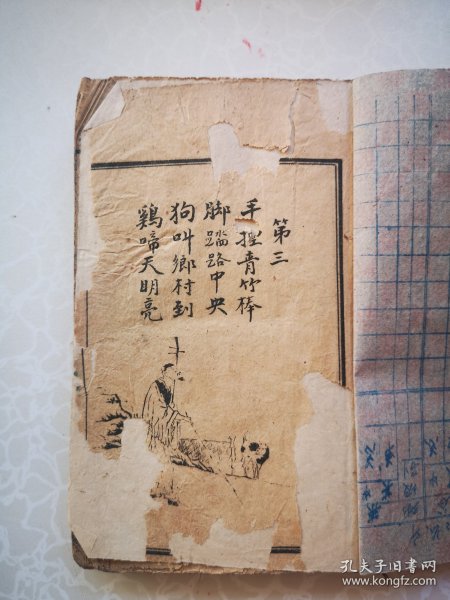 第三
手捏青竹棒
脚踏路中央
狗叫鄉村到
鷄啼天明亮
孔夫子旧書网
www.kongfz.com